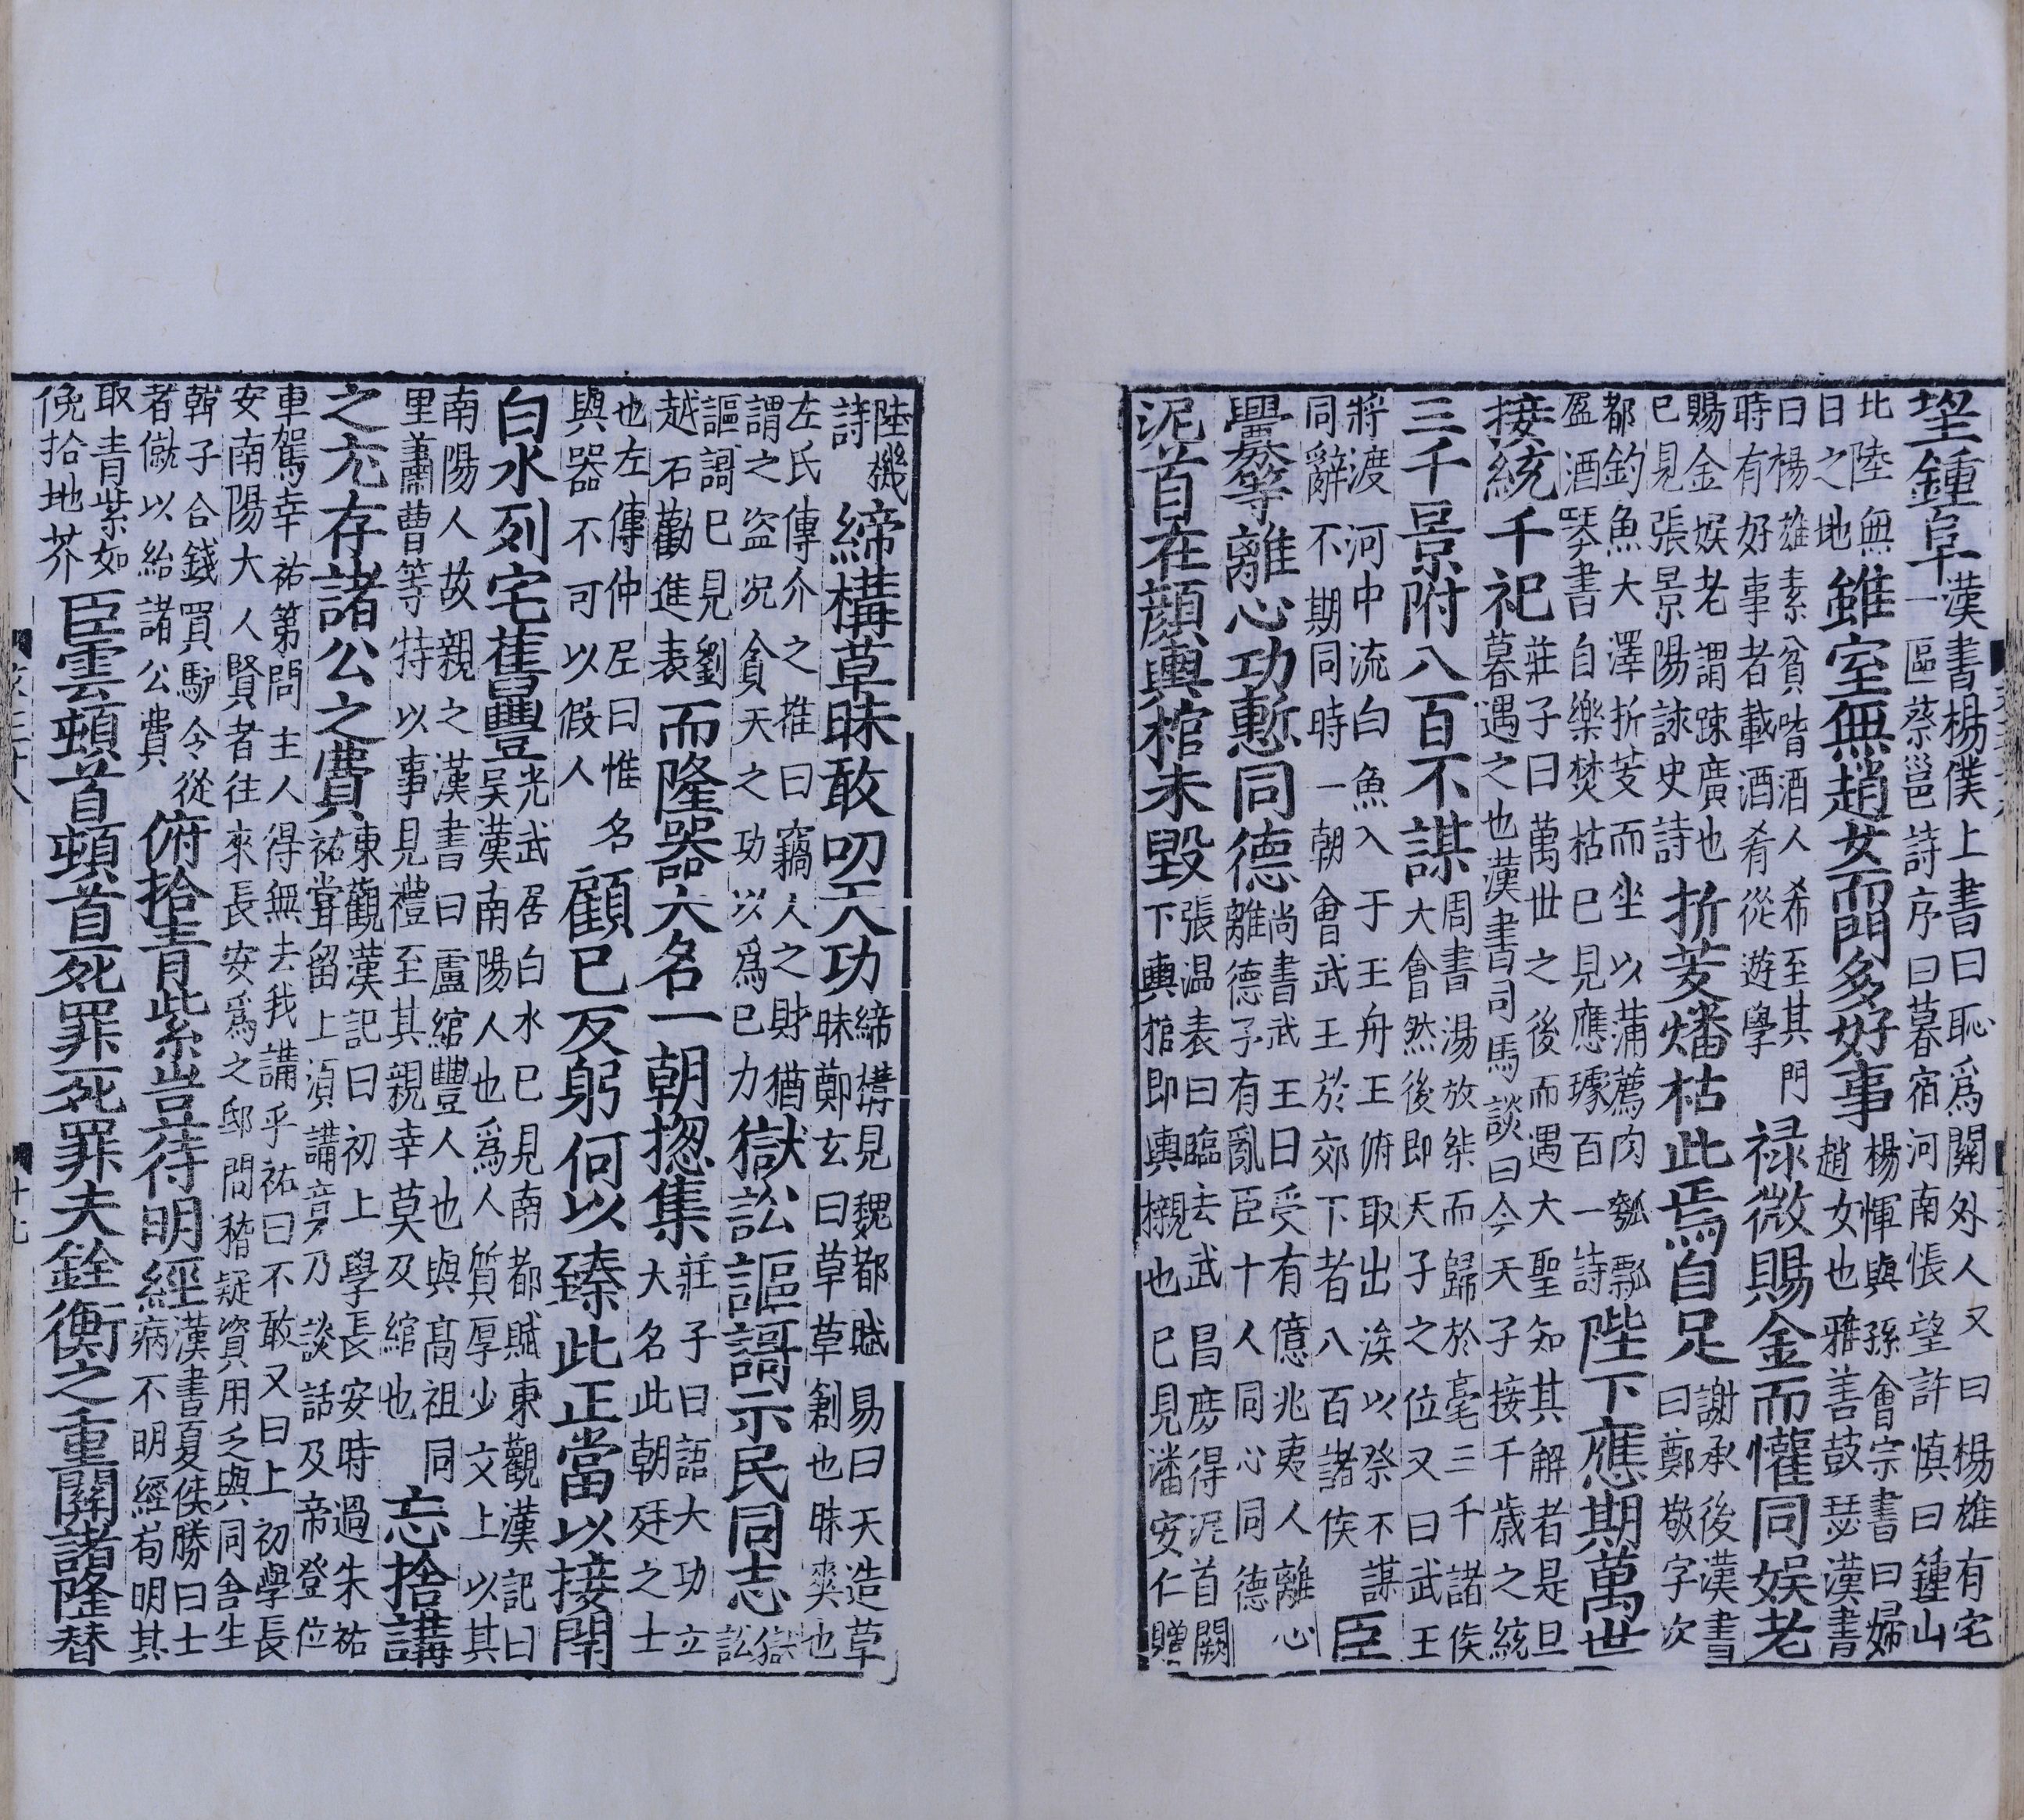 望鍾阜漢書楊僕上書曰恥爲關外人又曰楊雄有宅一區蔡邕詩序曰暮宿河南悵望許慎曰鍾山
北陸無日之地雖室無趙女而門多好事楊惲與孫會宗書曰婦趙女也雅善鼓瑟漢書
曰楊雄素貧嗜酒人希至其門時有好事者載酒肴從遊學祿微賜金而懽同娛老
賜金娛老謂踈廣也已見張景陽詠史詩折芰燔枯此焉自足謝承後漢書曰鄭敬字次
都釣魚大澤折芰而坐以蒲薦肉瓠瓢盈酒琴書自樂焚枯已見應璩百一詩陛下應期萬世
接統千祀莊子曰萬世之後而遇大聖知其解者是旦暮遇之也漢書司馬談曰今天子接千歲之統
三千景附八百不謀周書湯放桀而歸於亳三千諸侯大會然後即天子之位又曰武王
將渡河中流白魚入于王舟王俯取出涘以祭不謀同辭不期同時一朝會武王於郊下者八百諸侯臣
釁等離心功慙同德尚書武王曰受有億兆夷人離心離德予有亂臣十人同心同德
泥首在顔輿棺未毀張温表曰臨去武昌庶得泥首闕下輿棺即輿櫬也已見潘安仁贈
陸機詩締構草昧敢叨天功締構見魏都賦易曰天造草昧鄭玄曰草草創也昧爽也
左氏傳介之推曰竊人之財猶謂之盜況貪天之功以爲己力獄訟謳謌示民同志獄訟
謳謌已見劉越石勸進表而隆器大名一朝揔集莊子曰語大功立大名此朝廷之士
也左傳仲尼曰惟名與器不可以假人顧已反躬何以臻此正當以接閈
白水列宅舊豐光武居白水已見南都賦東觀漢記曰吴漢南陽人也爲人質厚少文上以其
南陽人故親之漢書曰盧綰豐人也與高祖同里蕭曹等特以事見禮至其親幸莫及綰也忘捨講
之尤存諸公之費東觀漢記曰初上學長安時過朱祐祐嘗留上須講竟乃談話及帝登位
車駕幸祐第問主人得無去我講乎祐曰不敢又曰上初學長安南陽大人賢者往來長安爲之邸問稽疑資用乏與同舍生
韓子合錢買馿令從者僦以給諸公費俯拾青紫豈待明經漢書夏侯勝曰士病不明經苟明其
取青紫如俛拾地芥臣雲頓首頓首死罪死罪夫銓衡之重關諸隆替